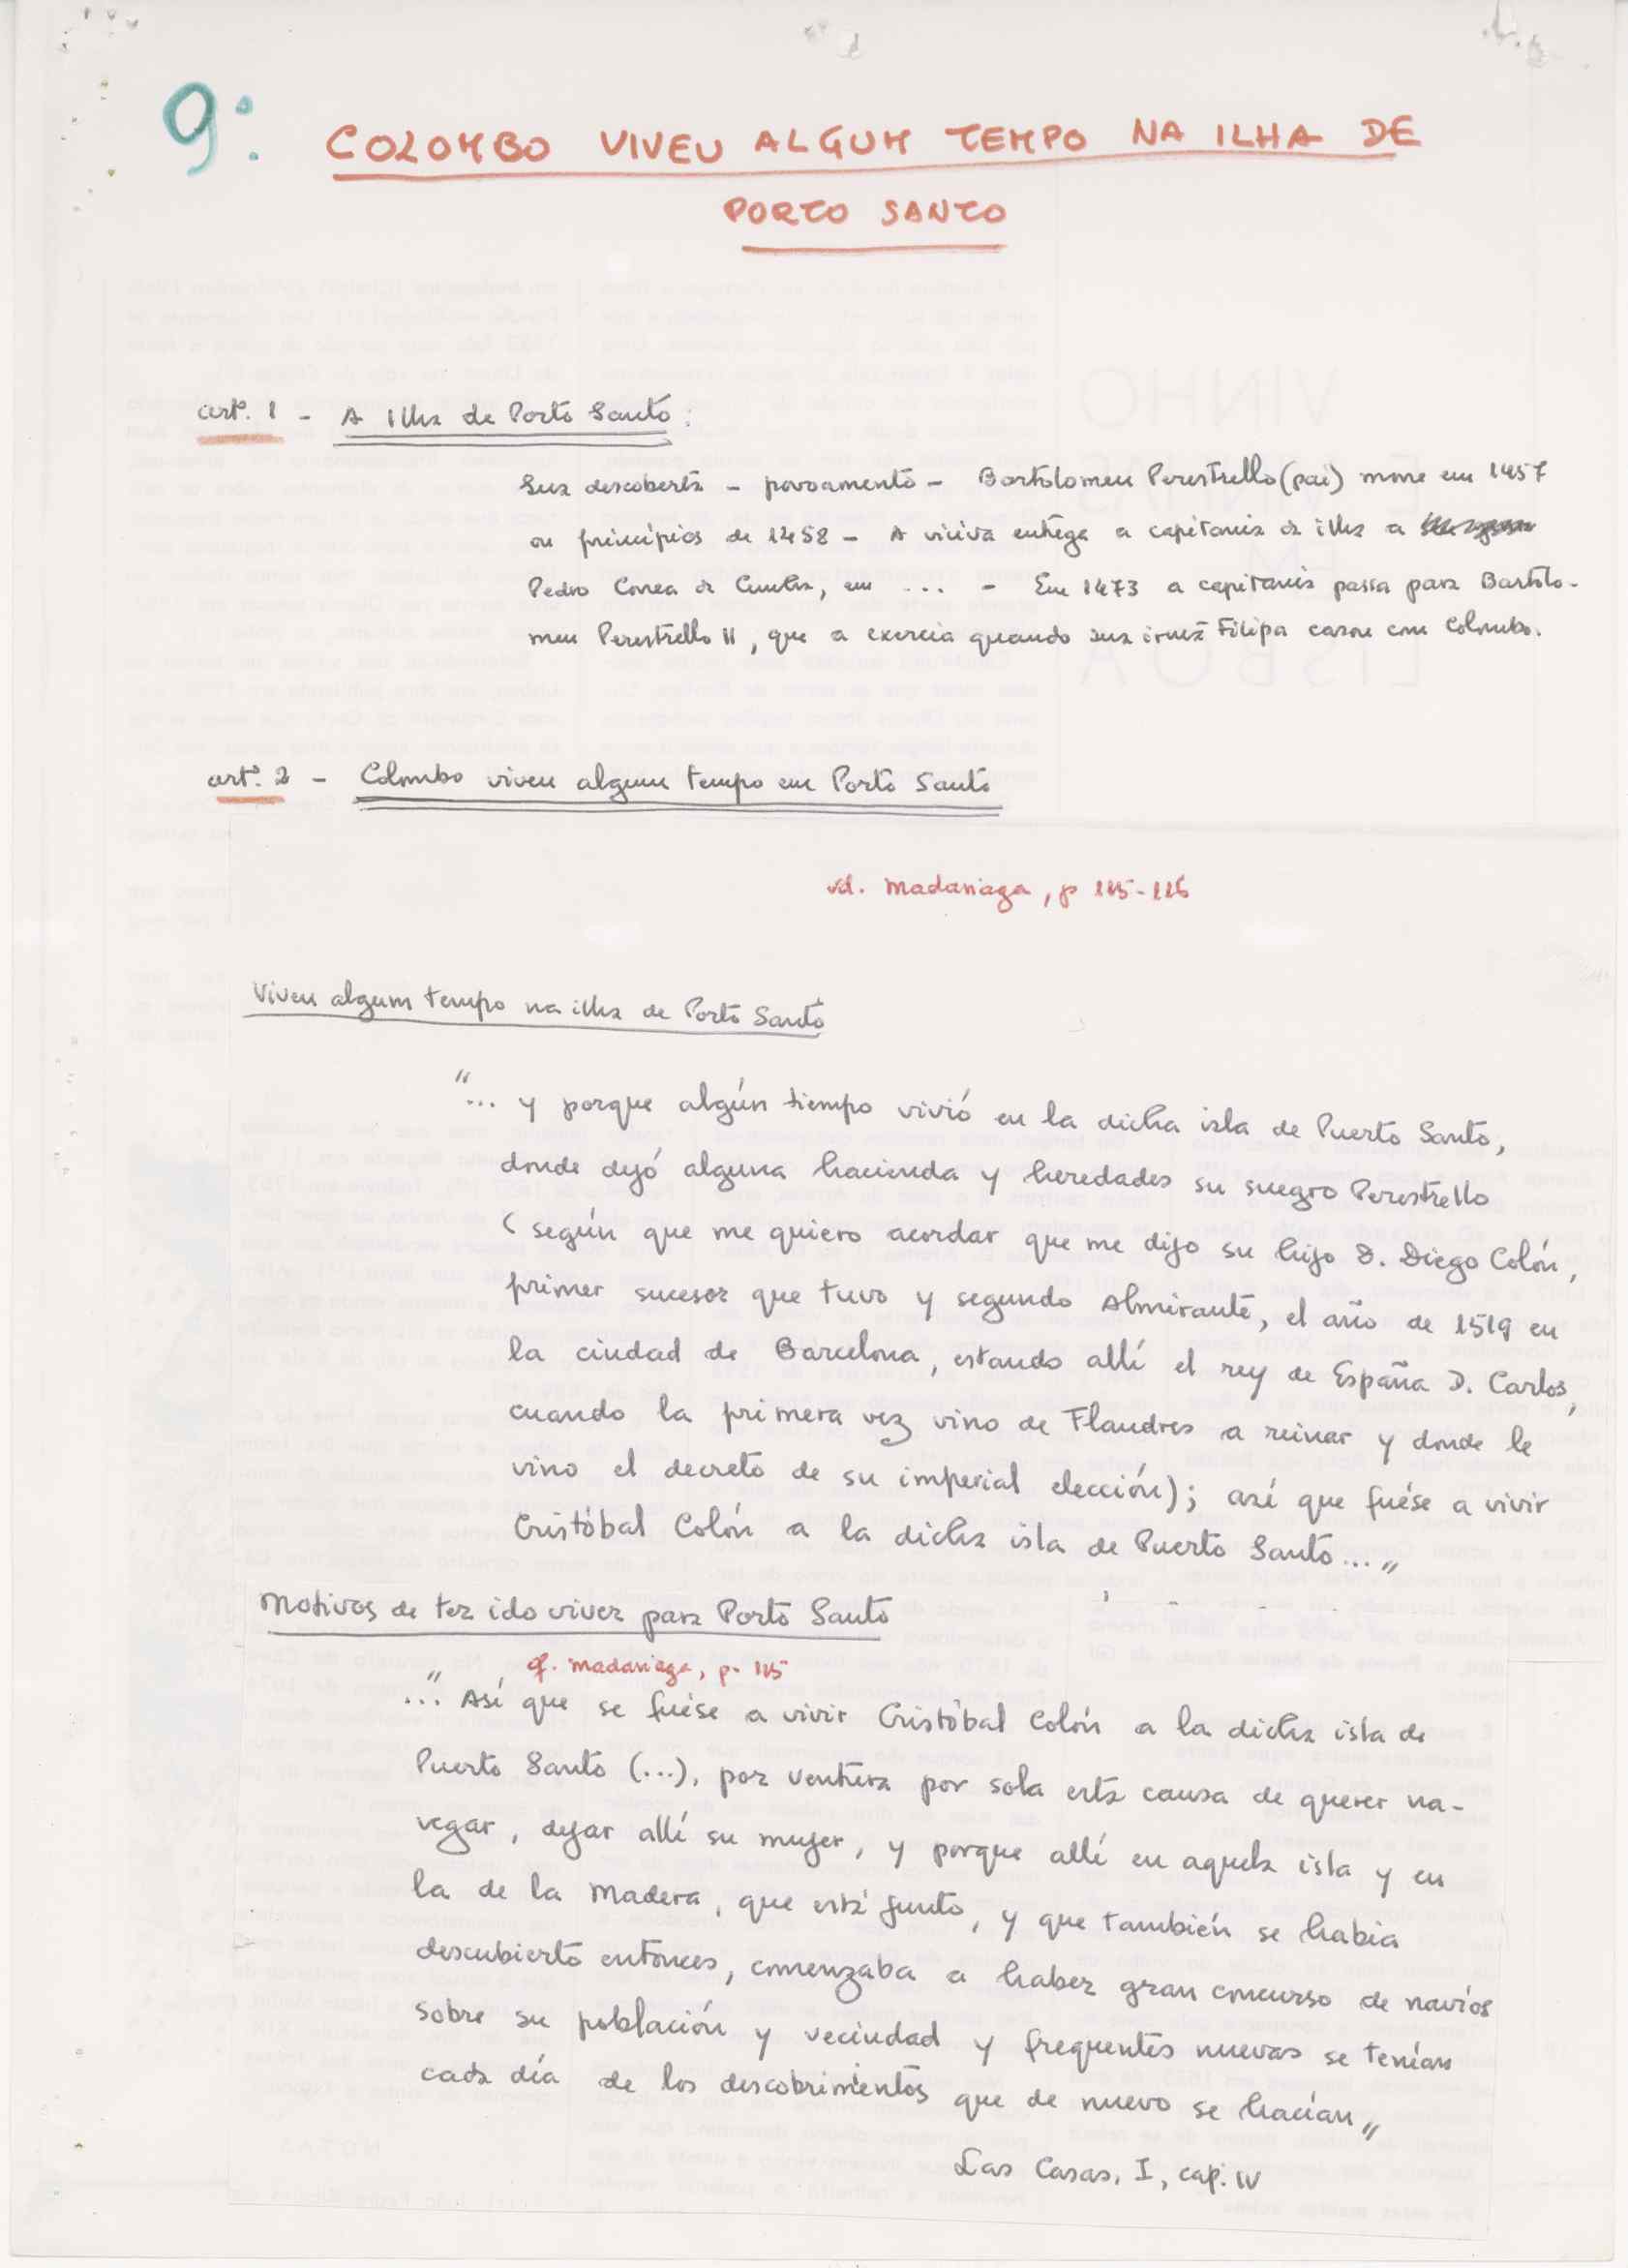 9º:
COLOMBO VIVEU ALGUM TEMPO NA ILHA DE
PORTO SANTO
artº. 1 - A Ilha de Porto Santo:
Sua descoberta - povoamento - Bartolomeu Perestrello (pai) morre em 1457
ou princípios de 1458 - A viúva entrega a capitania da ilha a
Pedro Correa da Cunha, em ... - Em 1473 a capitania passa para Bartolo-
meu Perestrello II, que a exercia quando sua irmã Filipa casou com Colombo.
artº. 2 - Colombo viveu algum tempo em Porto Santo
vd. Madariaga, p 115-116
Viveu algum tempo na ilha de Porto Santo
"... y porque algún tiempo vivió en la dicha isla de Puerto Santo,
donde dejó alguna hacienda y heredades su suegro Perestrello
(según que me quiero acordar que me dijo su hijo D. Diego Colón,
primer sucesor que tuvo y segundo Almirante, el año de 1519 en
la ciudad de Barcelona, estando allí el rey de España D. Carlos,
cuando la primera vez vino de Flandres a reinar y donde le
vino el decreto de su imperial elección); así que fuése a vivir
Cristóbal Colón a la dicha isla de Puerto Santo..."
Motivos de ter ido viver para Porto Santo
cf. Madariaga, p. 115
"... Así que se fuése a vivir Cristóbal Colón a la dicha isla de
Puerto Santo (...), por ventura por sola esta causa de querer na-
vegar, dejar allí su mujer, y porque allí en aquela isla y en
la de la Madera, que está junto, y que también se habia
descubierto entonces, comenzaba a haber gran concurso de navíos
sobre su población y vecindad y frequentes nuevas se tenían
cada día de los descobrimientos que de nuevo se hacían"
Las Casas, I, cap. IV